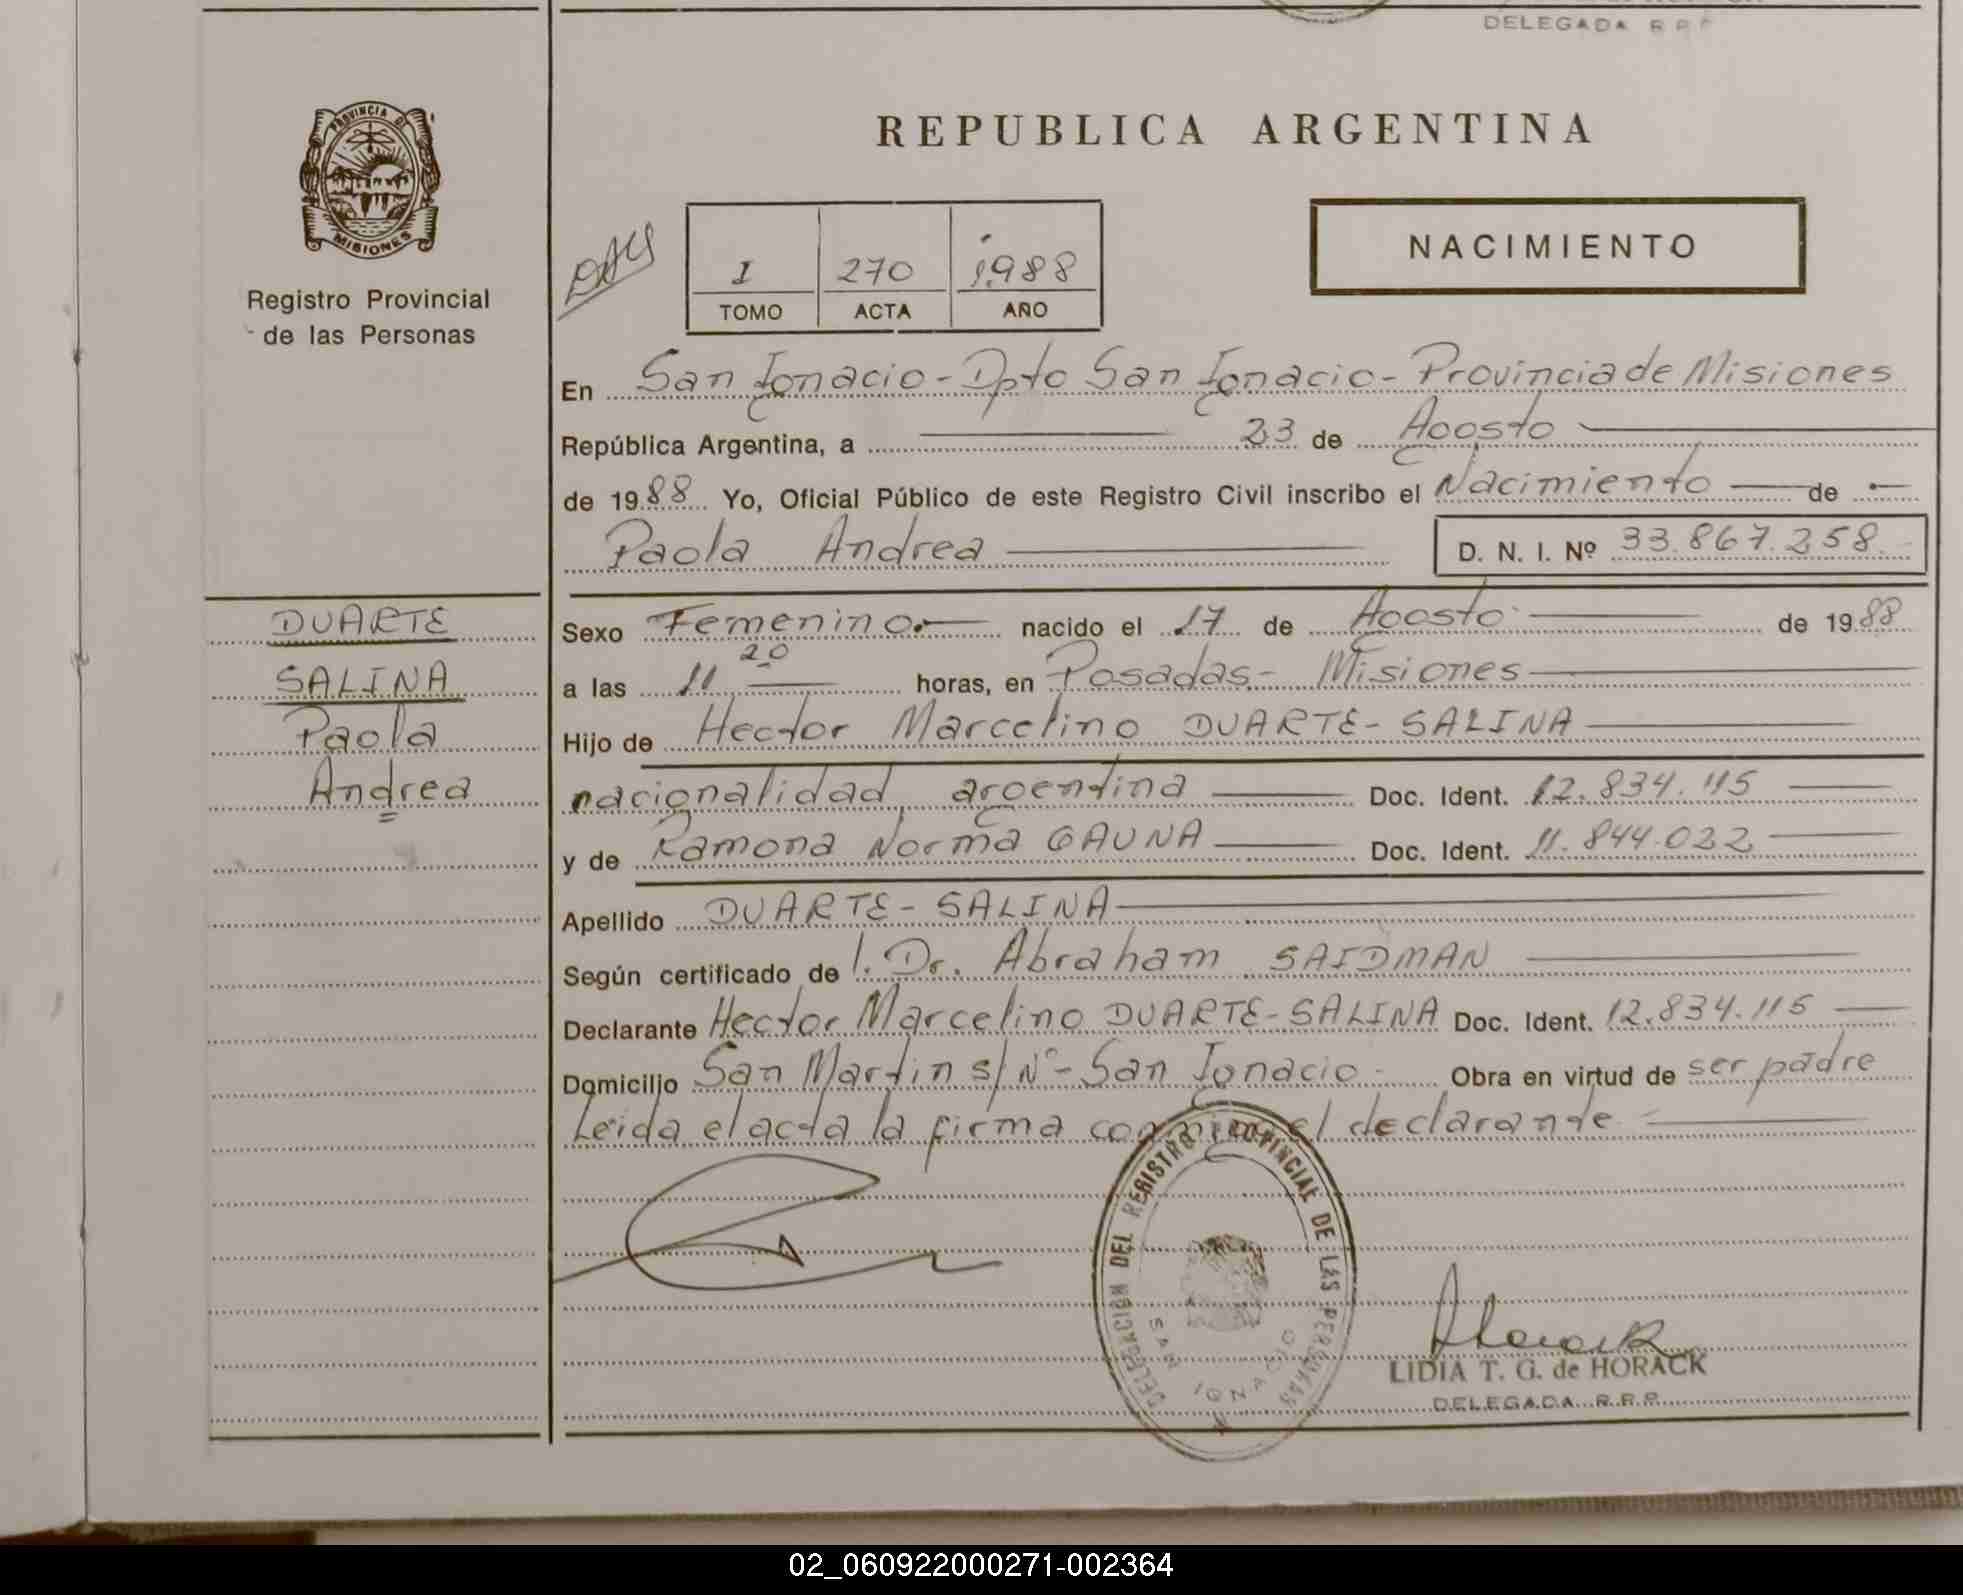 DELEGADA R.R.P.
PROVINCIA DE
MISIONES
Registro Provincial
de las Personas
REPUBLICA ARGENTINA
NACIMIENTO
I 270 1.988
TOMO ACTA AÑO
En San Ignacio - Dpto San Ignacio - Provincia de Misiones
República Argentina, a 23 de Agosto
de 1988 Yo, Oficial Público de este Registro Civil inscribo el Nacimiento de
Paola Andrea D. N. I. Nº 33.867.258
DUARTE
SALINA
Paola
Andrea
Sexo Femenino nacido el 17 de Agosto de 1988
a las 11 20 horas, en Posadas - Misiones
Hijo de Hector Marcelino DUARTE - SALINA
nacionalidad argentina Doc. Ident. 12.834.115
y de Ramona Norma GAUNA Doc. Ident. 11.844.022
Apellido DUARTE - SALINA
Según certificado de l. Dr. Abraham SAIDMAN
Declarante Hector Marcelino DUARTE - SALINA Doc. Ident. 12.834.115
Domicilio San Martin s/Nº - San Ignacio - Obra en virtud de ser padre
Leida el acta la firma conmigo el declarante
DELEGACION DEL REGISTRO PROVINCIAL DE LAS PERSONAS
SAN IGNACIO
Horack
LIDIA T. G. de HORACK
DELEGADA R.R.P.
02_060922000271-002364